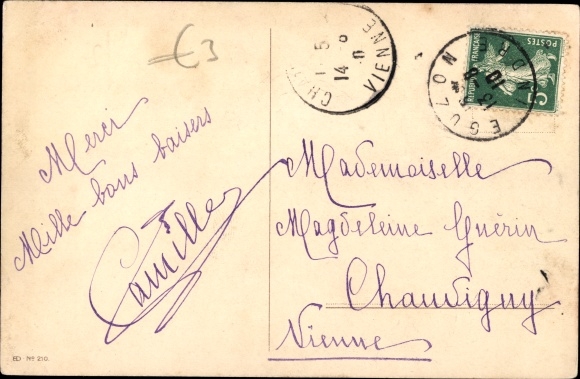 €3
Merci
Mille bons baisers
Camille
ED. No 210.
1-5
14 -8
VIENNE
13-8
10
POSTES
REPUBLIQUE FRANÇAISE
5
Mademoiselle
Magdeleine Guérin
Chauvigny
Vienne